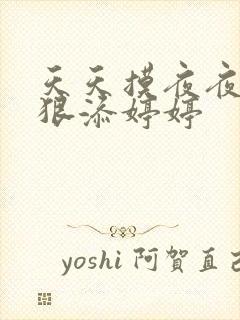 天天摸夜夜
狠添婷婷
yoshi 阿賀直己